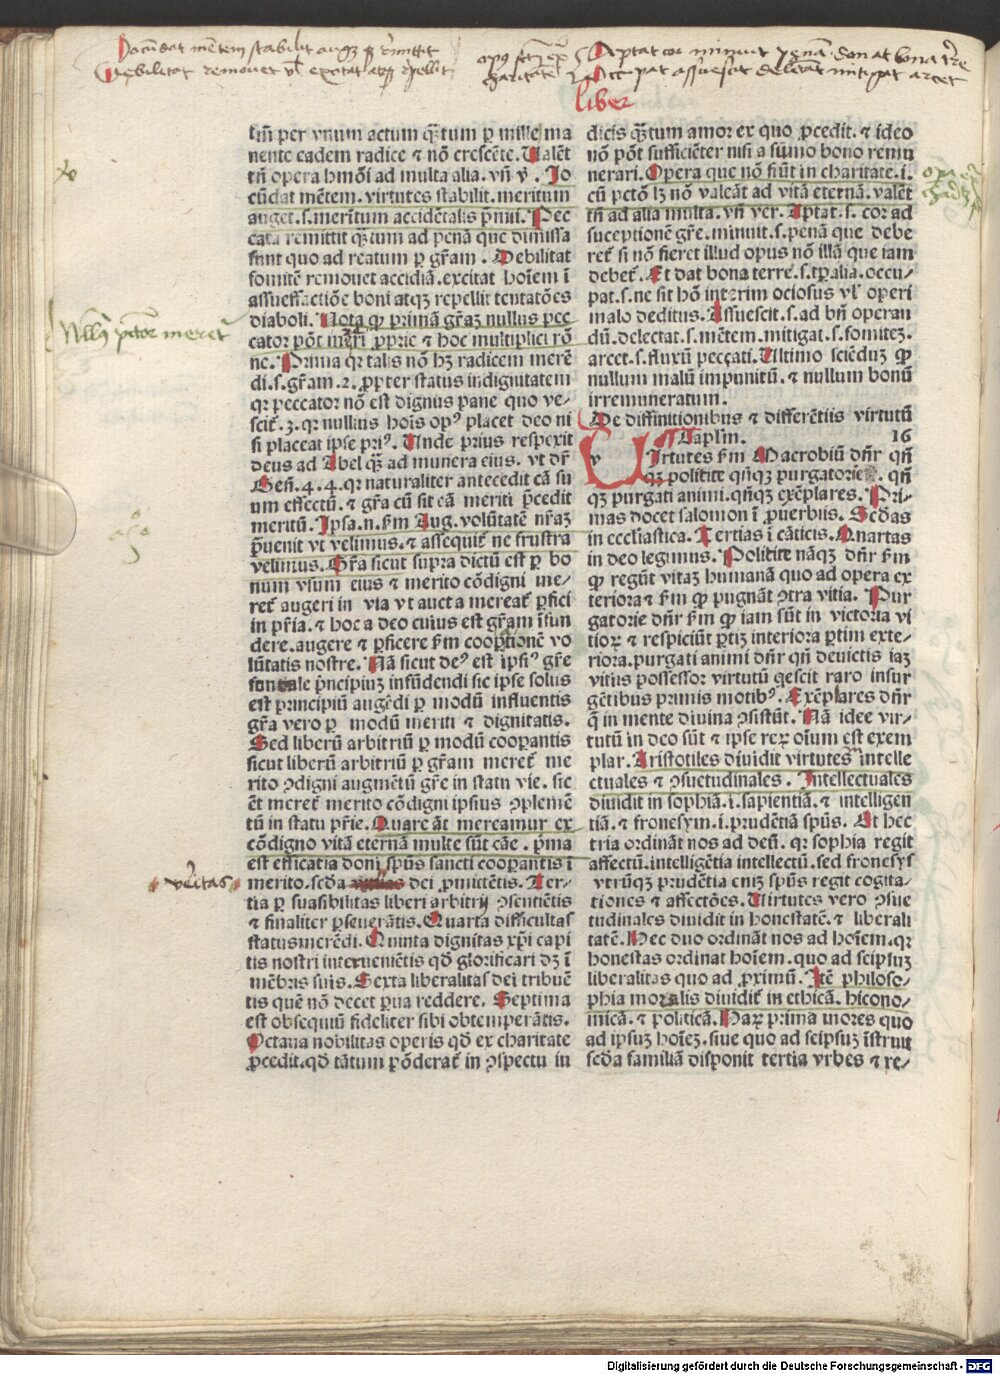 Jocūdat mētem stabilit auget remittit
Debilitat remouet vl' excitat atqȝ repellit
Aptat cor minuit penā donat bona tr̄e
Occupat assuescit delectat mitigat arcet
liber
tm̄ per vnum actum q̄tum ꝑ mille ma
nente eadem radice ⁊ nō crescēte. Ualēt
tn̄ opera hmōi ad multa alia. vn̄ ꝟ. Jo
cūdat mētem. virtutes stabilit. meritum
auget. s. meritum accidētalis p̄mii. Pec
cata remittit q̄tum ad penā que dimissa
sunt quo ad reatum ꝑ gr̄am. Debilitat
fomitē remouet accidiā. excitat hoīem ī
assuefactiōe boni atqȝ repellit tentatōes
diaboli. Nota ꝙ primā gr̄aȝ nullus pec
cator pōt mereri ꝓprie ⁊ hoc multiplici rō
ne. Prima qr talis nō hȝ radicem merē
di. s. gr̄am. 2. ꝓpter status indignitatem
qr peccator nō est dignus pane quo ve⸗
scit᷑. 3. qr nullius hoīs opꝰ placet deo ni
si placeat ipse priꝰ. Unde prius respexit
deus ad Abel q̄ȝ ad munera eius. vt dr̄
Gen̄. 4. 4. qr naturaliter antecedit cā su
um effectū. ⁊ gr̄a cū sit cā meriti p̄cedit
meritū. Ipsa. n. fm Aug. volūtatē nr̄aȝ
p̄uenit vt velimus. ⁊ assequit᷑ ne frustra
velimus. Gr̄a sicut supra dictū est ꝑ bo
num vsum eius ⁊ merito cōdigni me⸗
ret᷑ augeri in via vt aucta mereat᷑ ꝑfici
in pr̄ia. ⁊ hoc a deo cuius est gr̄am īfun
dere. augere ⁊ ꝑficere fm cooptionē vo
lūtatis nostre. Nā sicut deꝰ est ipsiꝰ gr̄e
fontale p̄ncipiuȝ infūdendi sic ipse solus
est principiū augēdi ꝑ modū influentis
gr̄a vero ꝑ modū meriti ⁊ dignitatis.
Sed liberū arbitriū ꝑ modū cooꝑantis
sicut liberū arbitriū ꝑ gr̄am meret᷑ me
rito ꝯdigni augmētū gr̄e in statu vie. sic
ēt meret᷑ merito cōdigni ipsius ꝯplemē
tū in statu pr̄ie. Quare āt mereamur ex
cōdigno vitā eternā multe sūt cāe. p̄ma
est efficatia doni spūs sancti cooꝑantis ī
merito. scd̄a dei ꝓmittētis. Ter⸗
tia ꝑ suasibilitas liberi arbitrij ꝯsentiētis
⁊ finaliter ꝑseuerātis. Quarta difficultas
status merēdi. Quinta dignitas xp̄i capi
tis nostri interuenietis qd̄ glorificari dȝ ī
mēbris suis. Sexta liberalitas dei tribuē
tis quē nō decet ꝑua reddere. Septima
est obsequiū fideliter sibi obtemperātis.
Octaua nobilitas operis qd̄ ex charitate
ꝓcedit. qd̄ tātum pōderat᷑ in ꝯspectu iu
dicis q̄tum amor ex quo ꝓcedit. ⁊ ideo
nō pōt sufficiēter nisi a sūmo bono remu
nerari. Opera que nō fiūt in charitate. i.
cū pctō lȝ nō valeāt ad vitā eternā. valēt
tn̄ ad alia multa. vn̄ ver. Aptat. s. cor ad
susceptionē gr̄e. minuit. s. penā que debe
ret᷑ si nō fieret illud opus nō illā que iam
debet᷑. Et dat bona terre. s. tp̄alia. occu⸗
pat. s. ne sit hō interim ociosus vl' operi
malo deditus. Assuescit. s. ad bn̄ operan
dū. delectat. s. mētem. mitigat. s. fomiteȝ.
arcet. s. fluxū peccati. Ultimo sciēduȝ ꝙ
nullum malū impunitū. ⁊ nullum bonū
irremuneratum.
De diffinitionibus ⁊ differētiis virtutū
Caplm̄. 16
Virtutes fm Macrobiū dn̄r qn̄
qȝ politice qn̄qȝ purgatorie. qn̄
qȝ purgati animi. qn̄qȝ exēplares. Pri⸗
mas docet salomon ī ꝓuerbiis. Scd̄as
in ecclīastica. Tertias ī cāticis. Quartas
in deo legimus. Politice nāqȝ dn̄r fm
ꝙ regūt vitaȝ humanā quo ad opera ex
teriora ⁊ fm ꝙ pugnāt ꝯtra vitia. Pur
gatorie dn̄r fm ꝙ iam sūt in victoria vi
tioꝝ ⁊ respiciūt ꝑtiȝ interiora ꝑtim exte⸗
riora. purgati animi dn̄r qn̄ deuictis iaȝ
vitiis possessor virtutū qescit raro insur
gētibus primis motibꝰ. Exēplares dn̄r
q̄ in mente diuina ꝯsistūt. Nā idee vir⸗
tutū in deo sūt ⁊ ipse rex oīum est exem
plar. Aristotiles diuidit virtutes intelle
ctuales ⁊ ꝯsuetudinales. Intellectuales
diuidit in sophiā. i. sapientiā. ⁊ intelligen
tiā. ⁊ fronesym. i. prudētiā spūs. Et hec
tria ordināt nos ad deū. qr sophia regit
affectū. intelligētia intellectū. sed fronesys
vtrūqȝ prudētia eniȝ spūs regit cogita⸗
tiones ⁊ affectōes. Uirtutes vero ꝯsue
tudinales diuidit in honestatē. ⁊ liberali
tatē. Hec duo ordināt nos ad hoīem. qr
honestas ordinat hoīem. quo ad seipsuȝ
liberalitas quo ad ꝓximū. Itē philoso⸗
phia moralis diuidit᷑ in ethicā. hicono⸗
micā. ⁊ politicā. Haꝝ prima mores quo
ad ipsuȝ hoīeȝ. siue quo ad seipsuȝ īstruit
scd̄a familiā disponit tertia vrbes ⁊ re⸗
Nullꝰ pctor meret᷑
veritas
Digitalisierung gefördert durch die Deutsche Forschungsgemeinschaft - DFG